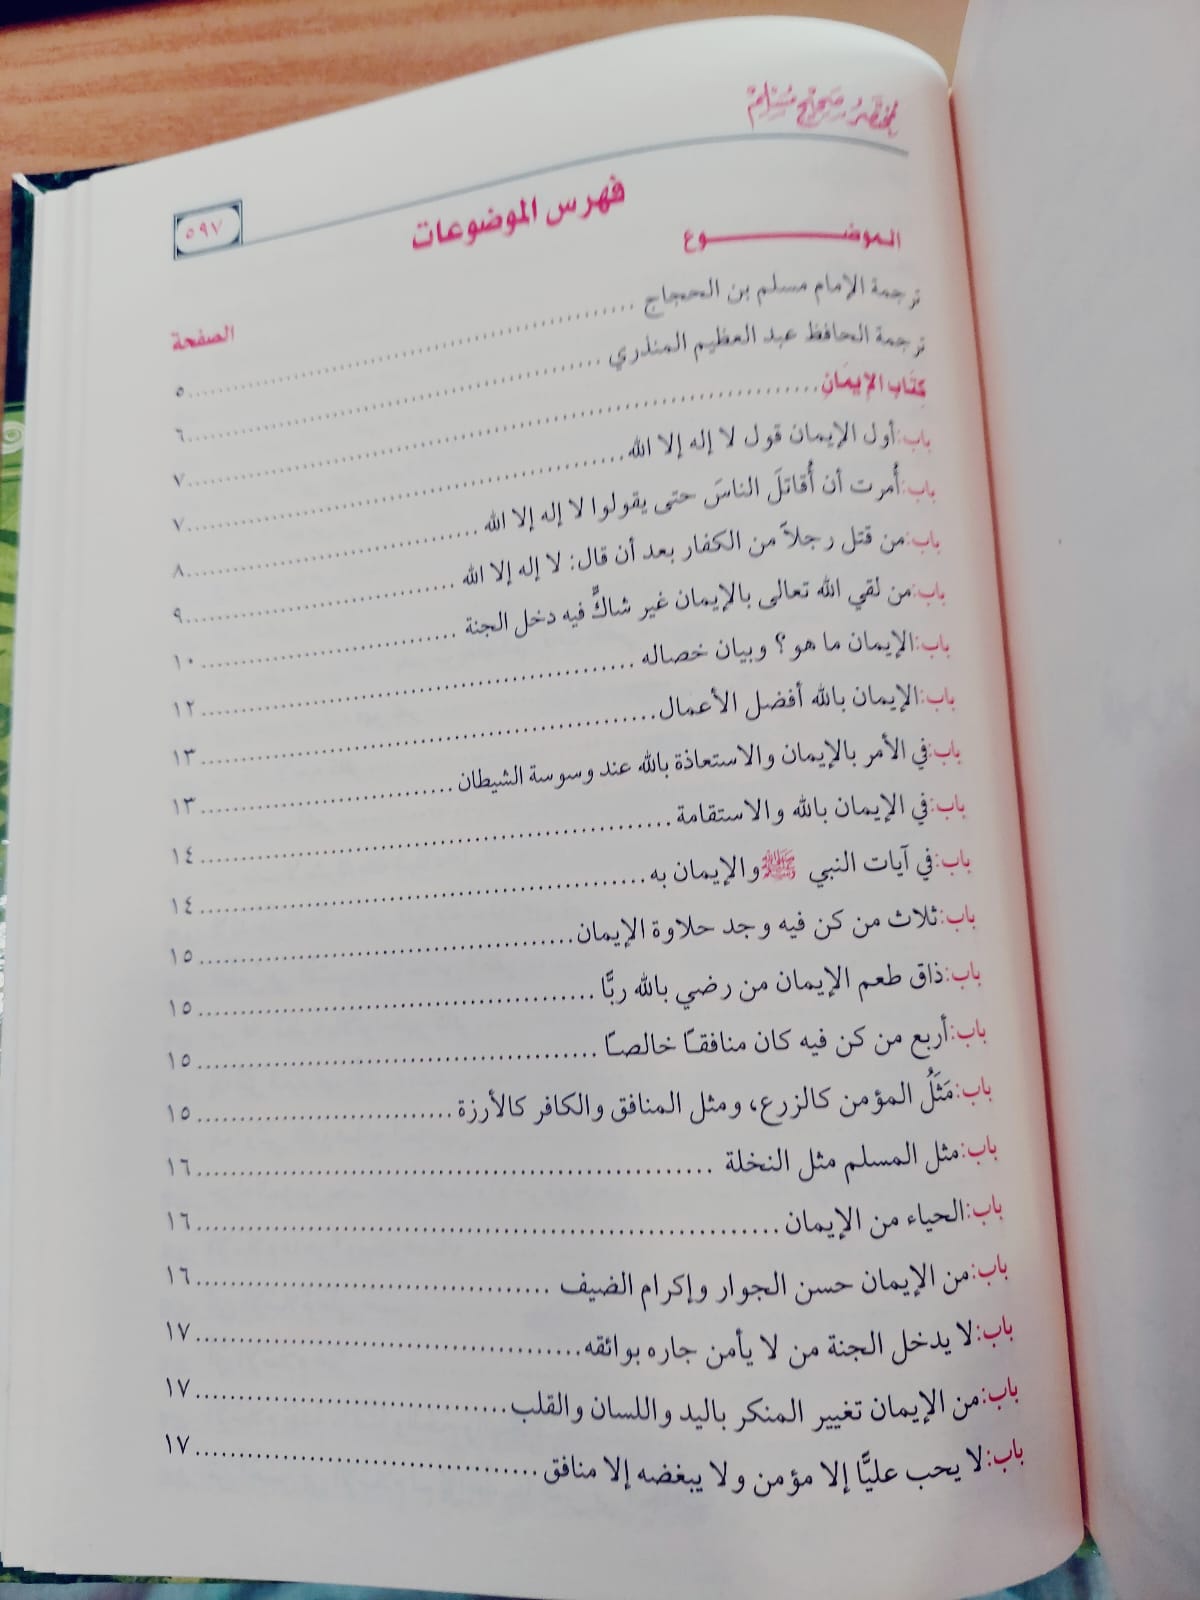 مختصر صحيح مسلم
٥٩٧
فهرس الموضوعات
الموضـــــــــــوع
الصفحة
ترجمة الإمام مسلم بن الحجاج ........ ٥
ترجمة الحافظ عبد العظيم المنذري ........ ٦
كِتَاب الإيمَانِ ........ ٧
باب: أول الإيمان قول لا إله إلا الله ........ ٧
باب: أُمرت أن أُقاتلَ الناسَ حتى يقولوا لا إله إلا الله ........ ٨
باب: من قتل رجلاً من الكفار بعد أن قال: لا إله إلا الله ........ ٩
باب: من لقي الله تعالى بالإيمان غير شاكٍّ فيه دخل الجنة ........ ١٠
باب: الإيمان ما هو؟ وبيان خصاله ........ ١٢
باب: الإيمان بالله أفضل الأعمال ........ ١٣
باب: في الأمر بالإيمان والاستعاذة بالله عند وسوسة الشيطان ........ ١٣
باب: في الإيمان بالله والاستقامة ........ ١٤
باب: في آيات النبي ﷺ والإيمان به ........ ١٤
باب: ثلاث من كن فيه وجد حلاوة الإيمان ........ ١٥
باب: ذاق طعم الإيمان من رضي بالله ربًّا ........ ١٥
باب: أربع من كن فيه كان منافقًا خالصًا ........ ١٥
باب: مَثَلُ المؤمن كالزرع، ومثل المنافق والكافر كالأرزة ........ ١٥
باب: مثل المسلم مثل النخلة ........ ١٦
باب: الحياء من الإيمان ........ ١٦
باب: من الإيمان حسن الجوار وإكرام الضيف ........ ١٦
باب: لا يدخل الجنة من لا يأمن جاره بوائقه ........ ١٧
باب: من الإيمان تغيير المنكر باليد واللسان والقلب ........ ١٧
باب: لا يحب عليًّا إلا مؤمن ولا يبغضه إلا منافق ........ ١٧